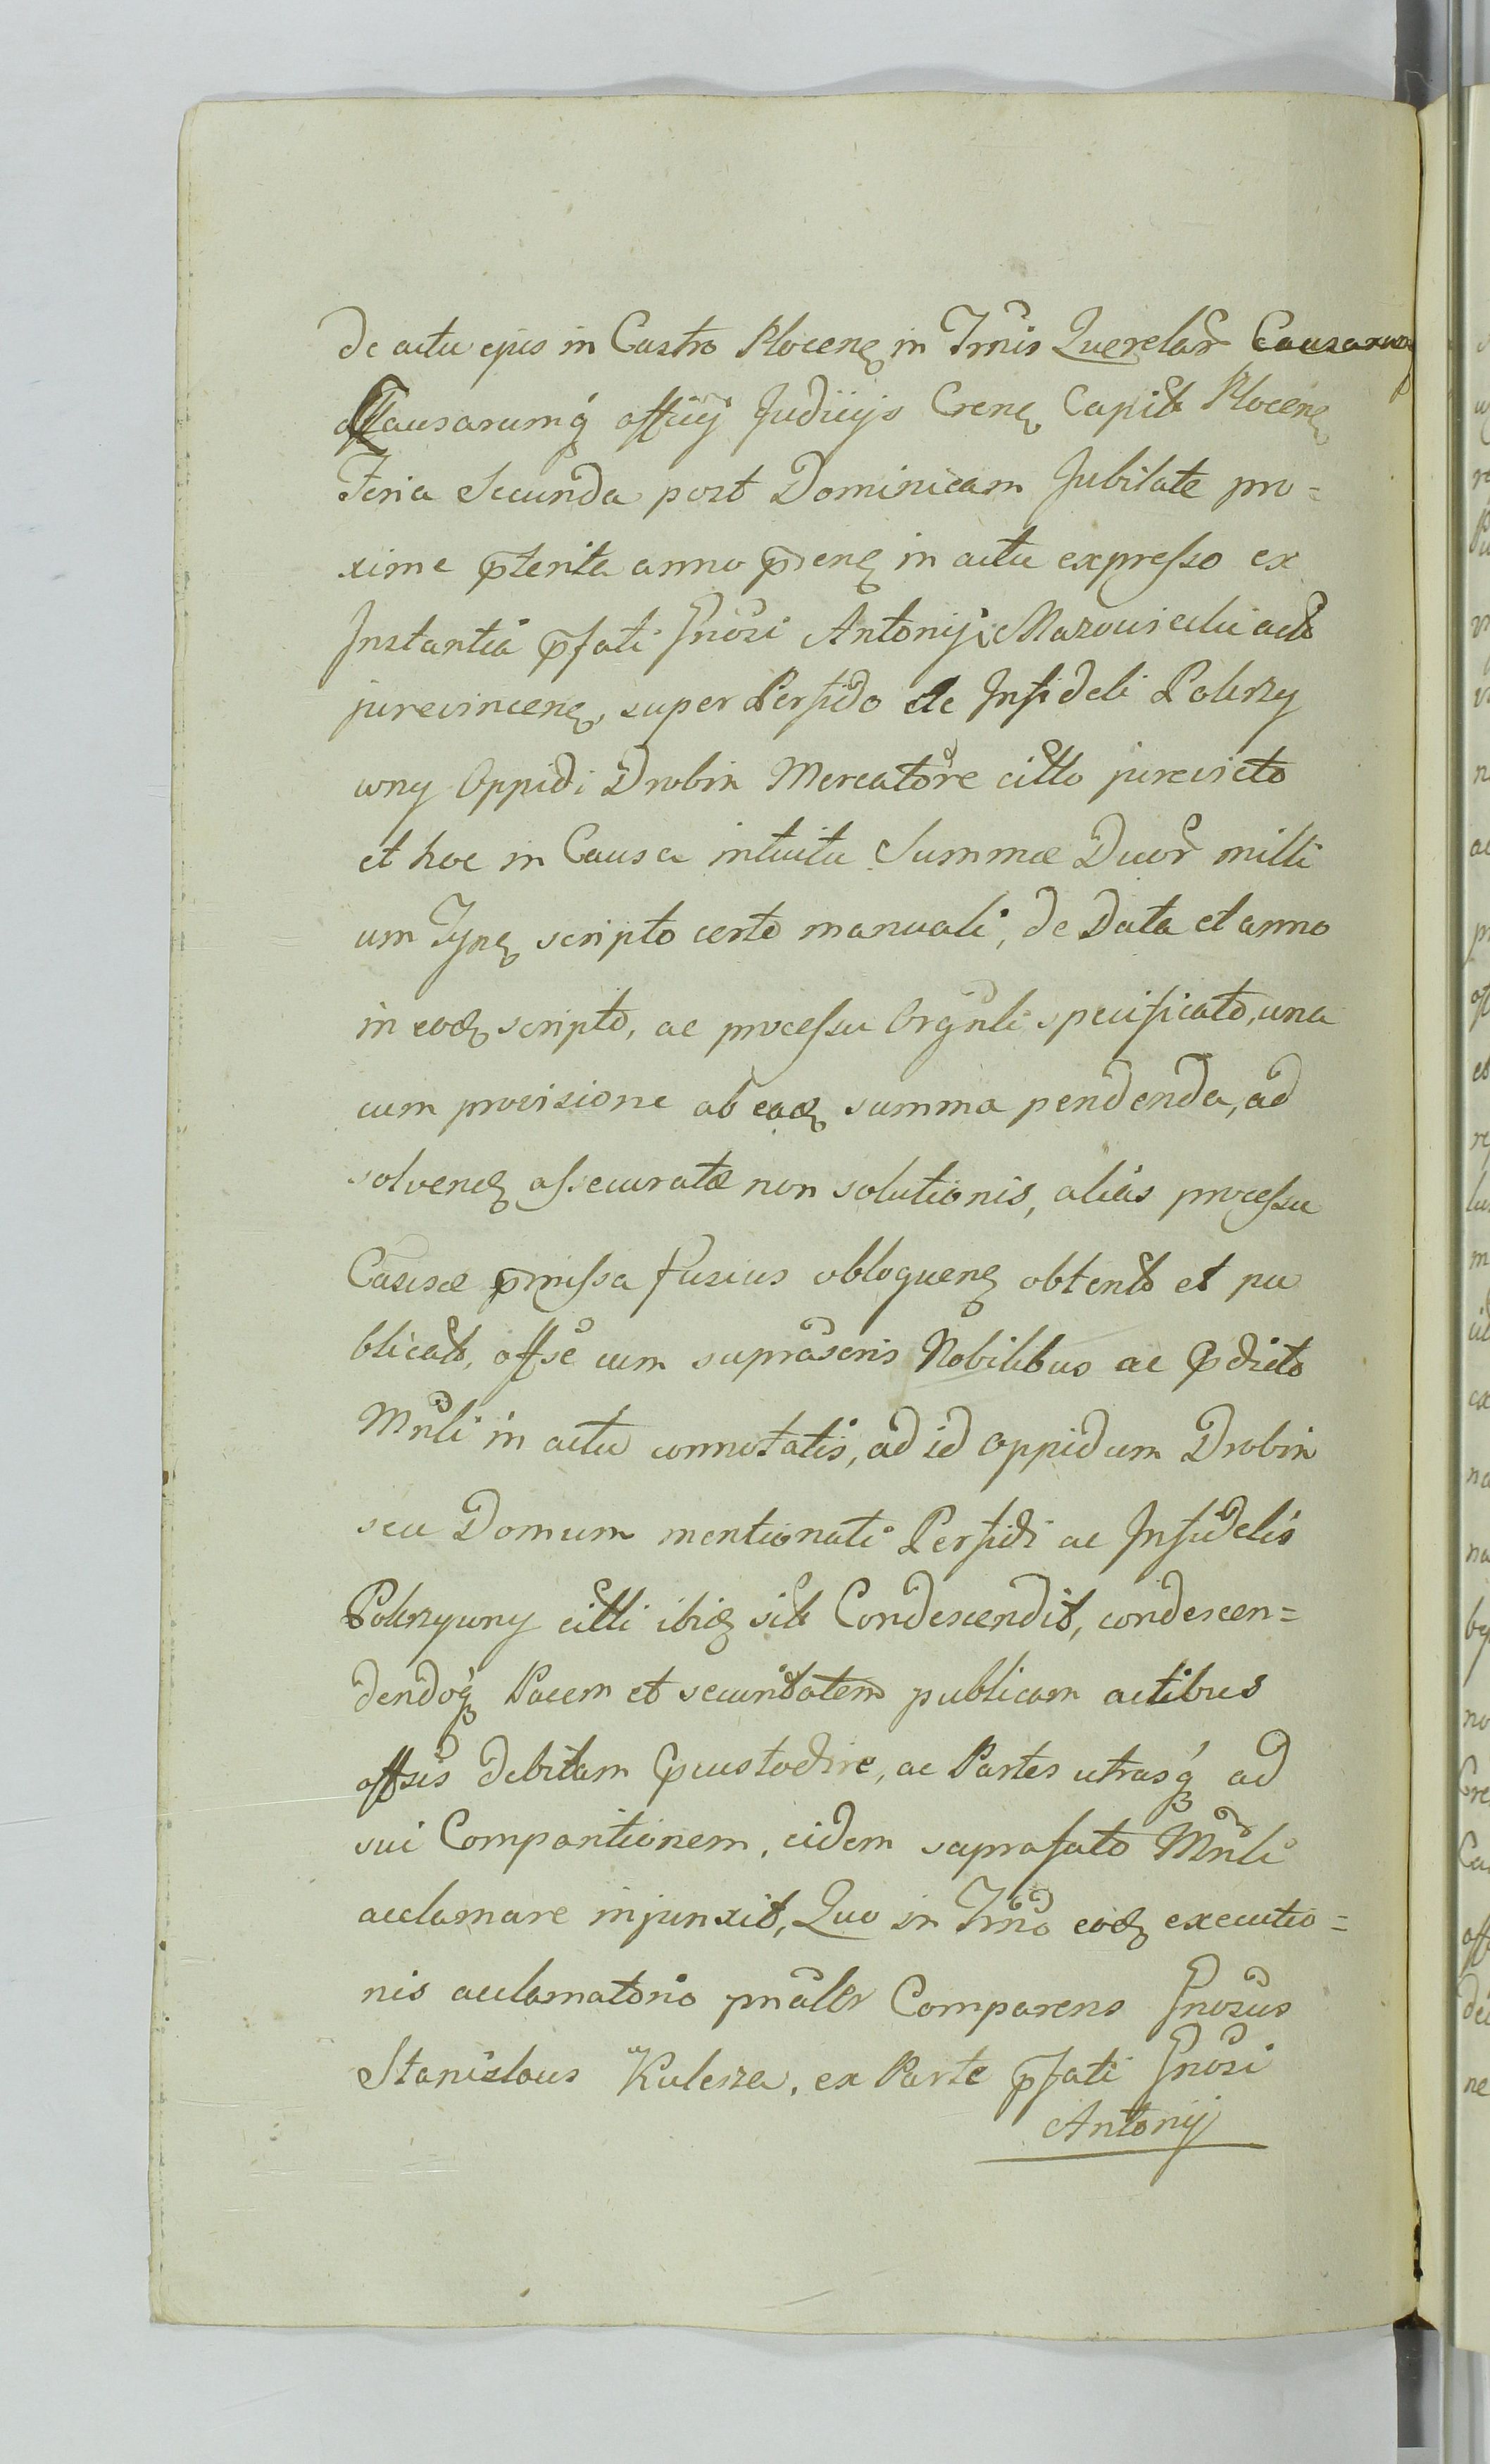 de actu ejus in Castro Plocenę in Trnis Querelar̃ Causarumq
Causarumq́ officij Judicijs Crenę Capitł Plocenę
Feria Secunda post Dominicam Jubilate pro=
xime p̃terita anno p̃senę in actu expresso ex
Instantia p̃fati Gnosi Antonij Mazowiecki actõ
jurevincenę, super Perfido ac Infideli Pokrzy
wny Oppidi Drobin Mercatore citto jurevicto
et hoc in Causa intuitu Summæ Duor̃ milli
um Tynę scripto certo manuali, de Data et anno
in eodę scripto, ac processu Orgnli specificato, una
cum provisione ab eadę summa pendenda, ad
solvendę assecuratæ non solutionis, alias processu
Causæ p̃missa fusius obloquenę obtentõ et pu
blicatõ, offse cum suprascris Nobilibus ac p̃dicto
Mnli in actu connotatis, ad id oppidum Drobin
seu Domum mentionati Perfidi ac Infidelis
Pokrzywny citti ibidę sitł Condescendit, condescen=
dendoq́ Pacem et securitatem publicam actibus
offsis debitam p̃custodire, ac Partes utrasq́ ad
sui Comparitionem, eidem saprafato Mnli
acclamare injunxit, Quo in Trno eodę executio=
nis acclamatorio pnalr Comparens Gnosus
Stanislaus Kulesza, ex Parte p̃fati Gnosi
Antonij